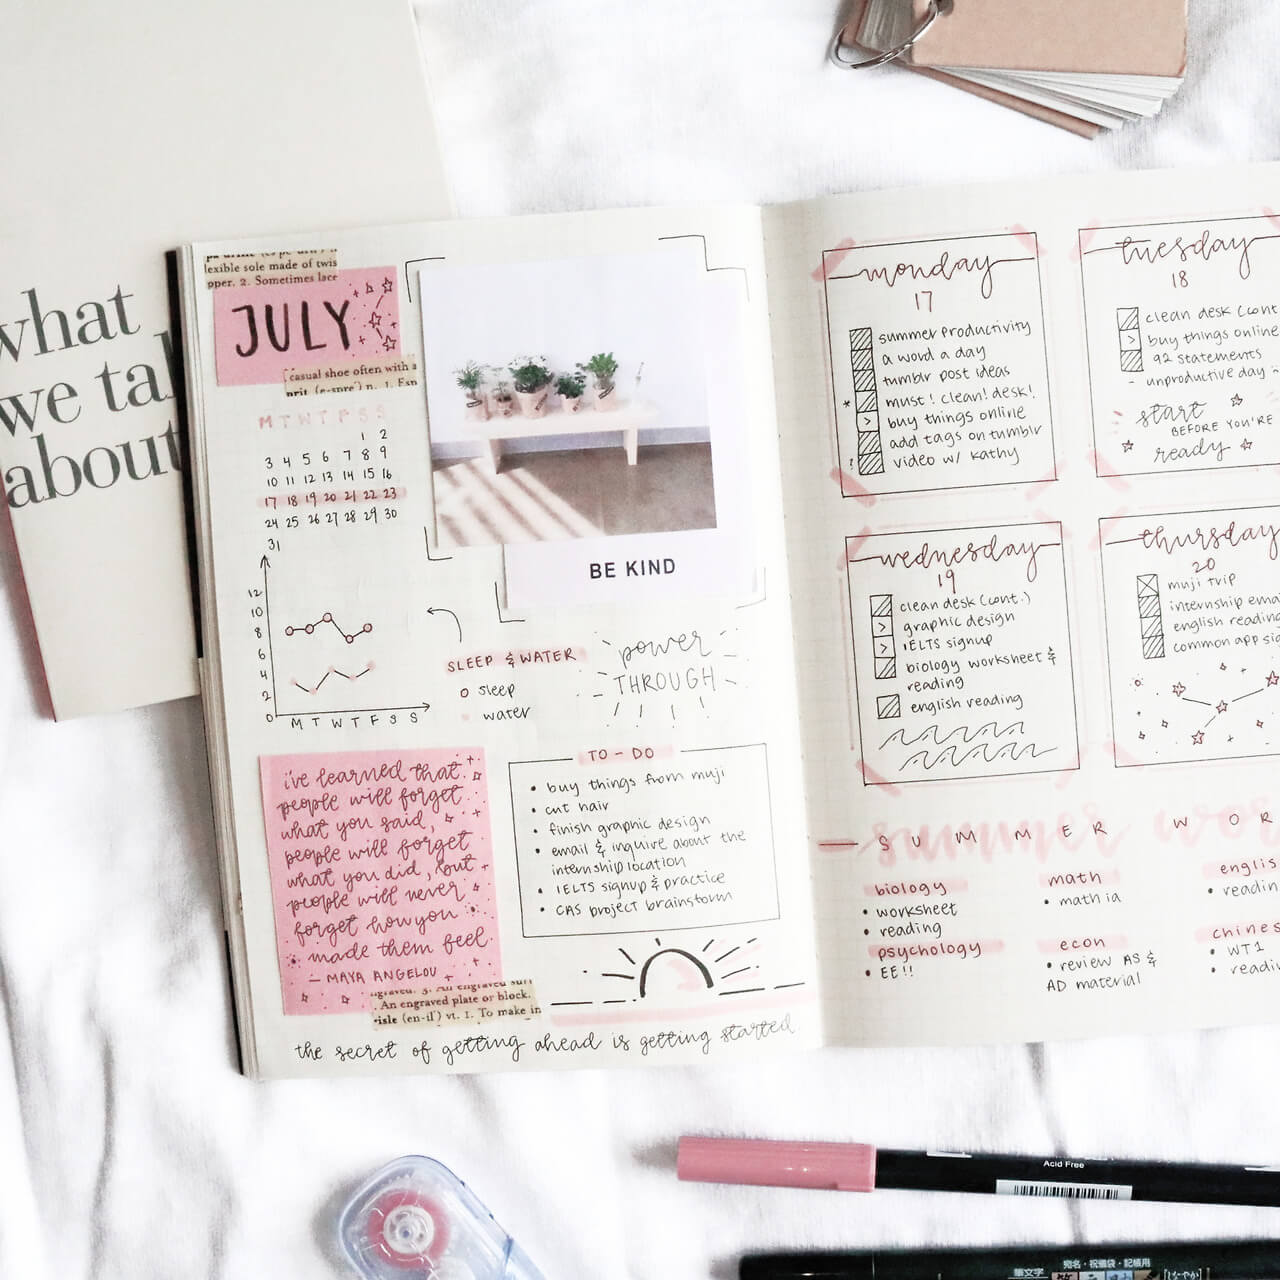 what
we tal
about
lexible sole made of twis
pper. 2. Sometimes lace
JULY
casual shoe often with a
prit (e-spre') n. 1. Esp
M T W T F S S
1 2
3 4 5 6 7 8 9
10 11 12 13 14 15 16
17 18 19 20 21 22 23
24 25 26 27 28 29 30
31
BE KIND
12
10
8
6
4
2
0
M T W T F S S
SLEEP & WATER
sleep
water
power
THROUGH
i've learned that
people will forget
what you said,
people will forget
what you did, but
people will never
forget how you
made them feel.
— MAYA ANGELOU
engraved. 3. An engraved surf
. An engraved plate or block.
isle (en-il') vt. 1. To make in
TO-DO
• buy things from muji
• cut hair
• finish graphic design
• email & inquire about the
internship location
• IELTS signup & practice
• CAS project brainstorm
the secret of getting ahead is getting started.
monday
17
summer productivity
a word a day
tumblr post ideas
* must! clean! desk!
> buy things online
add tags on tumblr
? video w/ kathy
tuesday
18
clean desk (cont
> buy things online
92 statements
- unproductive day
start
BEFORE YOU'RE
ready
wednesday
19
clean desk (cont.)
> graphic design
> IELTS signup
biology worksheet &
reading
english reading
thursday
20
muji trip
internship ema
english readin
common app sig
SUMMER WOR
summer wor
biology
• worksheet
• reading
psychology
• EE!!
math
• math ia
econ
• review AS &
AD material
englis
• readin
chines
• WT1
• readi
Acid Free
宛名・祝儀袋・記帳用
筆文字